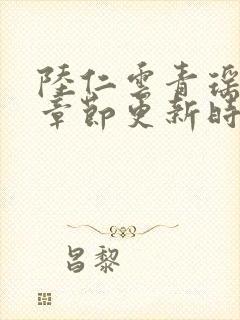 陸仁雲青瑶
章節更新時
昌黎